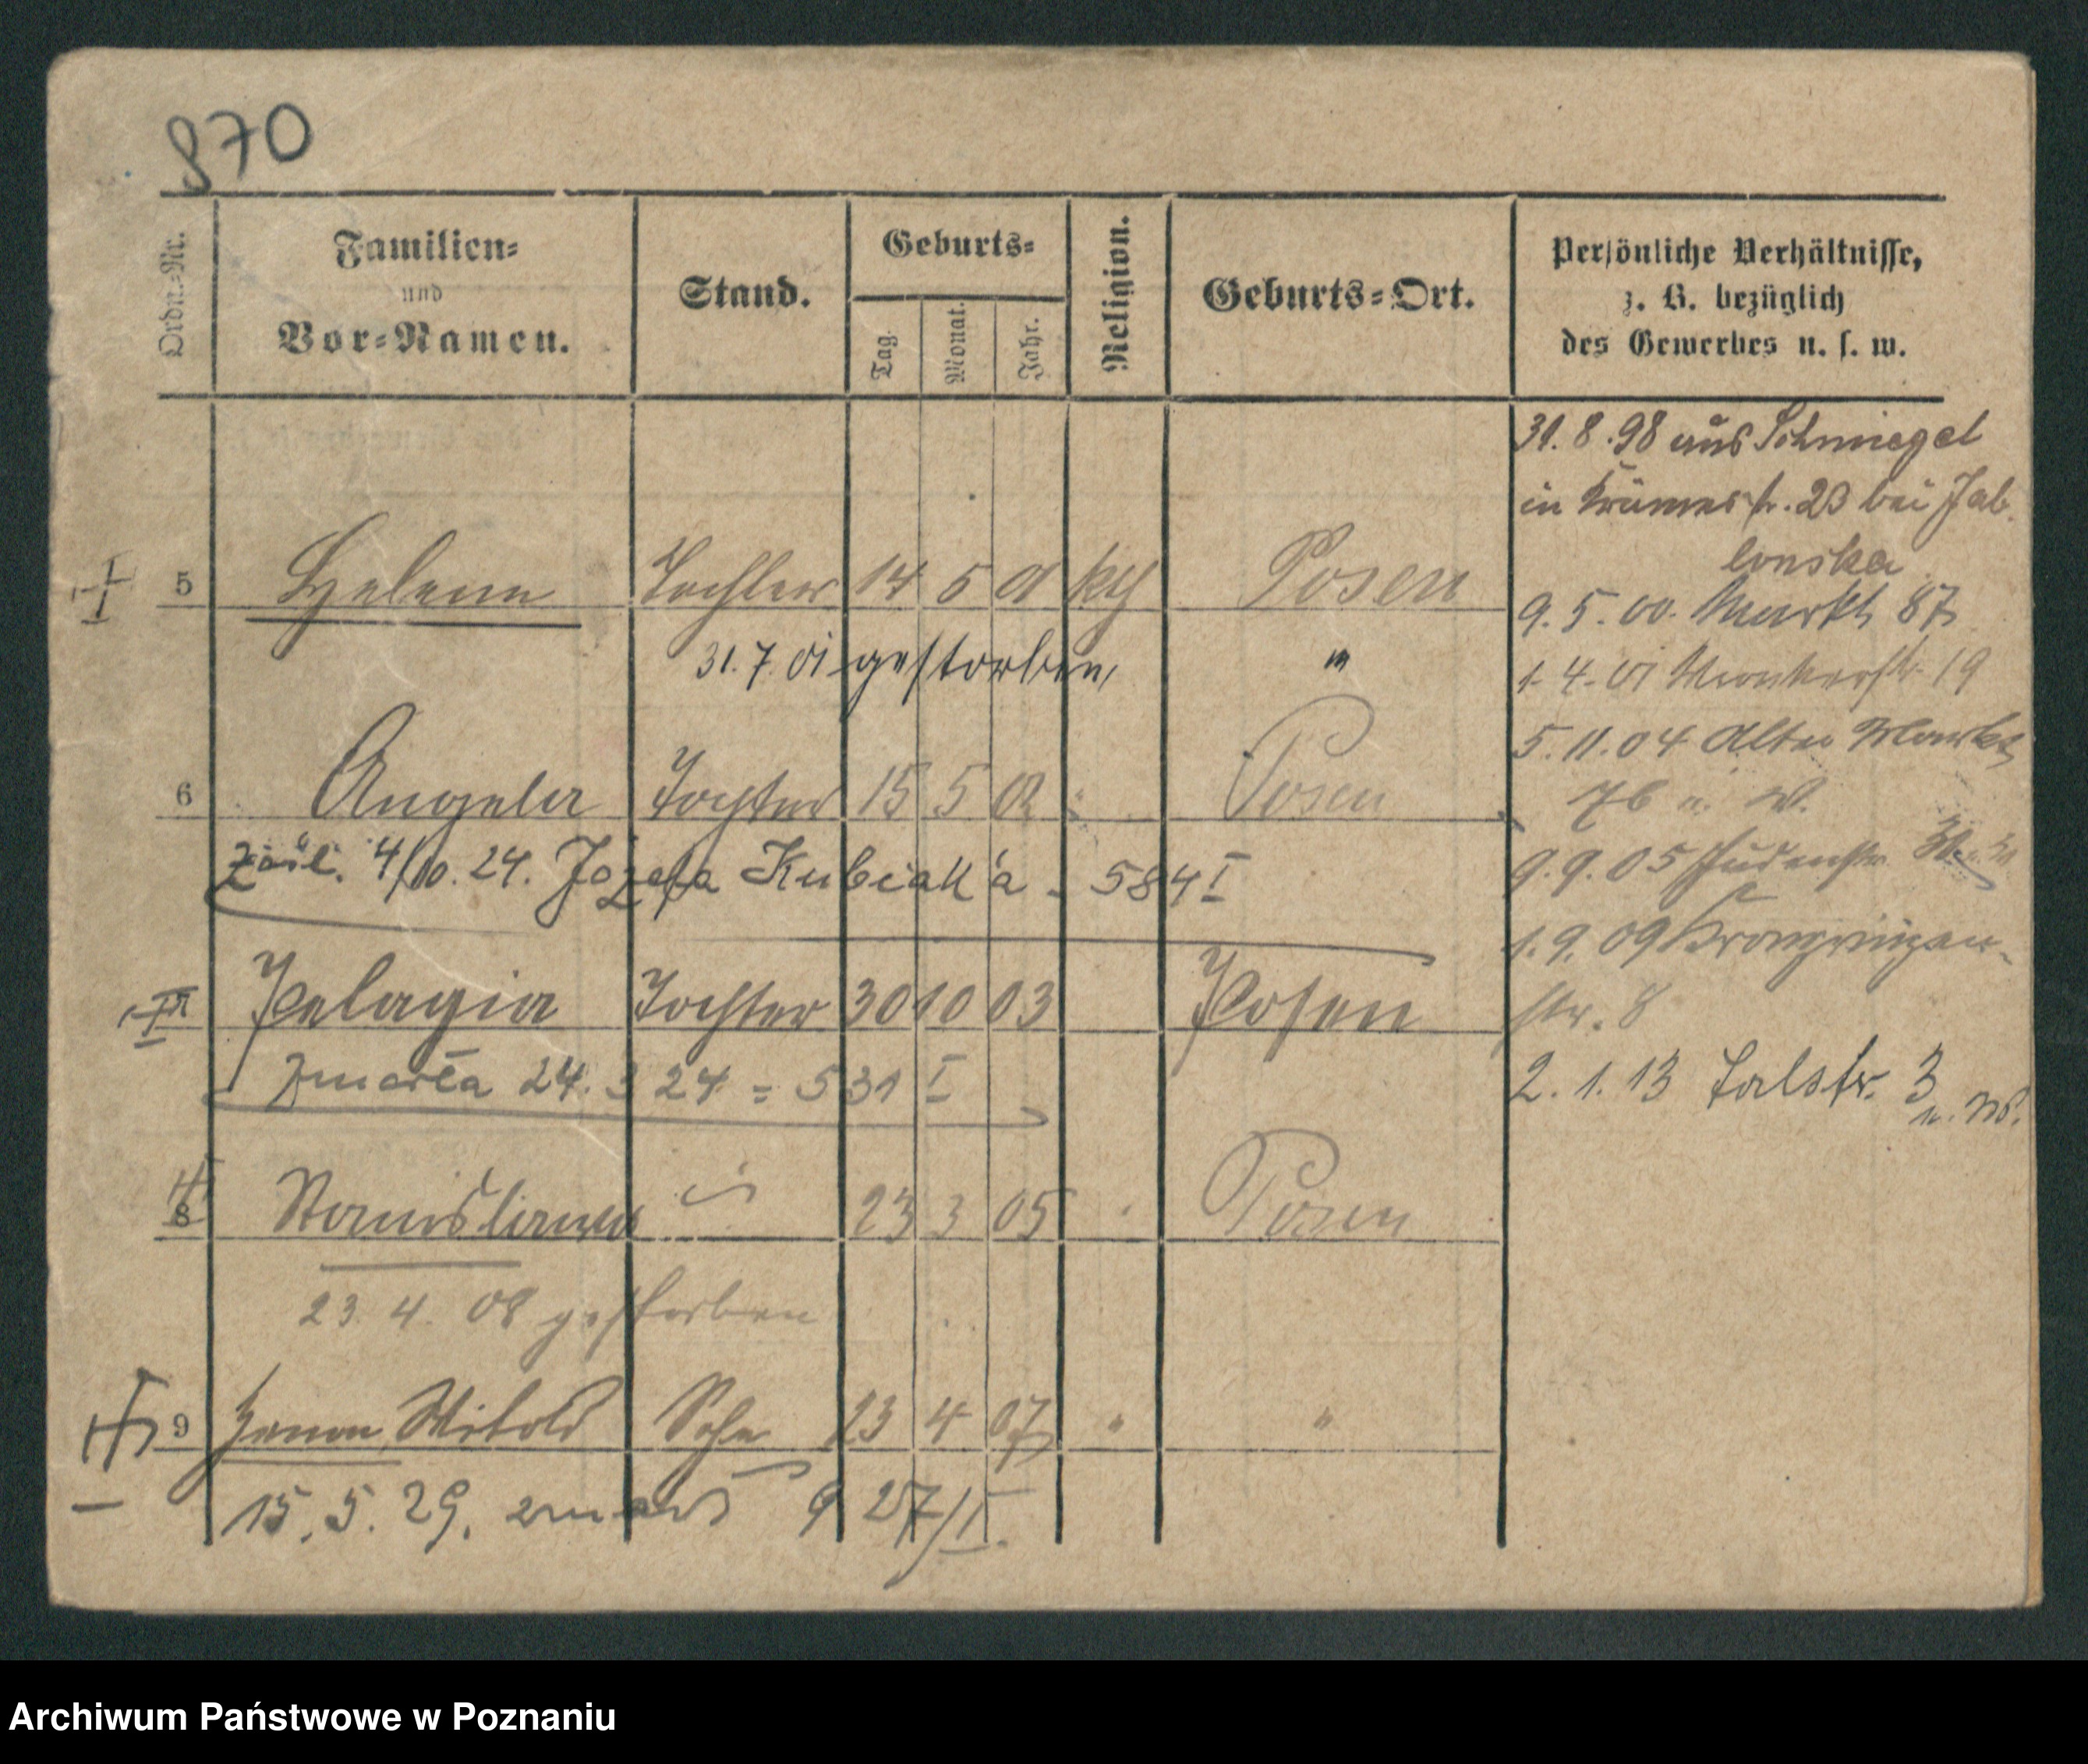 970
Ordn.-Nr.
Familien-
und
Vor-Namen.
Stand.
Geburts-
Tag.
Monat.
Jahr.
Religion.
Geburts-Ort.
Persönliche Verhältnisse,
z. B. bezüglich
des Gewerbes u. s. w.
31. 8. 98 aus Schmiegel
in Krämerstr. 23 bei Jab
lonska
5 Helene Tochter 14 5 01 kg Posen
9. 5. 00. Markt 87
31. 7. 01 gestorben, "
1. 4. 01 19
5. 11. 04 Alter Markt
76 u. W.
6 Angela Tochter 15 5 02 " Posen
zaśl. 4/10. 24. Józefa Kubiak'a - 584 I
9. 9. 05 Judenstr.
1. 9. 09 Kronprinzen-
str. 8
Pelagia Tochter 30 10 03 Posen
zmarła 24. 3 24 = 531 I
2. 1. 13 Talstr. 3
u. W.
8 Stanislaus 23 3 05 Posen
23. 4. 08 gestorben
9 Zenon Witold Sohn 23 4 07 " "
15. 5. 29. zmarł 9 27/I.
Archiwum Państwowe w Poznaniu